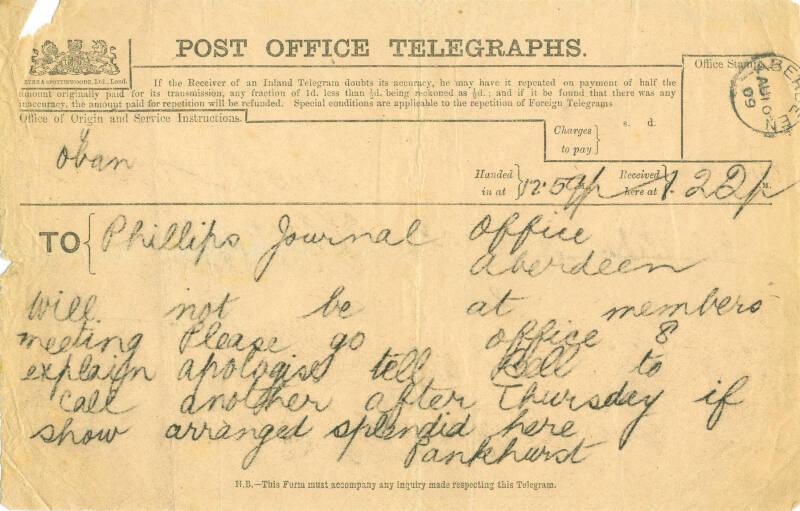 POST OFFICE TELEGRAPHS.
EYRE & SPOTTISWOODE, Ltd., Lond.
Office Stamp.
ABERDEEN
AU 10
09
If the Receiver of an Inland Telegram doubts its accuracy, he may have it repeated on payment of half the
amount originally paid for its transmission, any fraction of 1d. less than ½d. being reckoned as ½d.; and if it be found that there was any
inaccuracy, the amount paid for repetition will be refunded. Special conditions are applicable to the repetition of Foreign Telegrams
Office of Origin and Service Instructions.
Oban
Charges to pay
s. d.
Handed in at 12.59p Received here at 1.22p
TO Phillips Journal Office
Aberdeen
Will not be at members
meeting Please go office 8
explain apologise tell to
call another after Thursday if
show arranged splendid here
Pankhurst
N.B.—This Form must accompany any inquiry made respecting this Telegram.